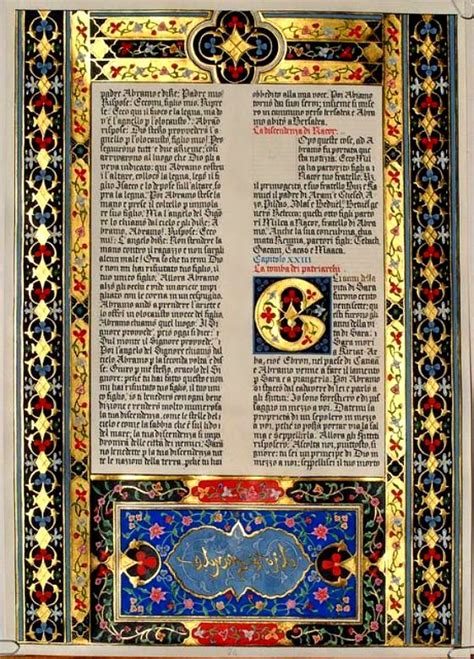 padre Abramo e disse: Padre mio!
Rispose: Eccomi, figlio mio. Ripre
se: Ecco qui il fuoco e la legna, ma do
v'è l'agnello p l'olocausto? Abramo
rispose: Dio stesso provvederà l'a
gnello p l'olocausto, figlio mio! Pro
seguirono tutt'e due insieme; così
arrivarono al luogo che Dio gli a
veva indicato; qui Abramo costruì
l'altare, collocò la legna, legò il fi
glio Isacco e lo depose sull'altare, so
pra la legna. Poi Abramo stese la
mano e prese il coltello p immola
re suo figlio. Ma l'angelo del Signo
re lo chiamò dal cielo e gli disse: A
bramo, Abramo! Rispose: Ecco
mi! L'angelo disse: Non stendere la
mano contro il ragazzo e non fargli
alcun male! Ora so che tu temi Dio
e non mi hai rifiutato tuo figlio, il
tuo unico figlio! Allora Abramo
alzò gli occhi e vide un ariete impi
gliato con le corna in un cespuglio.
Abramo andò a prendere l'ariete e
lo offrì in olocausto invece del figlio.
Abramo chiamò quel luogo: Il Si
gnore provvede, perciò oggi si dice:
Sul monte il Signore provvede.
Poi l'angelo del Signore chiamò dal
cielo Abramo p la seconda volta e dis
se: Giuro p me stesso, oracolo del Si
gnore: pché tu hai fatto questo e non
mi hai rifiutato tuo figlio, il tuo uni
co figlio, io ti benedirò con ogni bene
dizione e renderò molto numerosa
la tua discendenza, come le stelle del
cielo e come la sabbia che è sul lido
del mare; la tua discendenza si im
padronirà delle città dei nemici. Saran
no benedette p la tua discendenza tut
te le nazioni della terra, pché tu hai
obbedito alla mia voce. Poi Abramo
tornò dai suoi servi; insieme si mise
ro in cammino verso Bersabea e Abra
mo abitò a Bersabea.
La discendenza di Nacor.
Dopo queste cose, ad
Abramo fu portata que
sta notizia: Ecco Mil
ca ha partorito figli a
Nacor tuo fratello: Uz,
il primogenito, e suo fratello Buz e Ka
muel il padre di Aram e Chesed, A
zo, Pildas, Idlaf e Betuel; Betuel ge
nerò Rebecca: questi otto figli partorì
Milca a Nacor, fratello di Abra
mo. Anche la sua concubina, chia
mata Reuma, partorì figli: Tebach,
Gacam, Tacas e Maaca.
Capitolo XXIII
La tomba dei patriarchi
Gli anni della
vita di Sara
furono cento
ventisette: que
sti furono gli
anni della vi
ta di Sara.
Sara morì
a Kiriat-Ar
ba, cioè Ebron, nel paese di Canaan
e Abramo venne a fare il lamento
p Sara e a piangerla. Poi Abramo
si staccò dal cadavere di lei e parlò a
gli Hittiti: Io sono forestiero e di pas
saggio in mezzo a voi. Datemi la
proprietà di un sepolcro in mezzo
a voi, pché io possa portar via la sal
ma e seppellirla. Allora gli Hittiti
risposero: Ascolta noi, piuttosto, si
gnore: tu sei un principe di Dio in
mezzo a noi: seppellisci il tuo morto